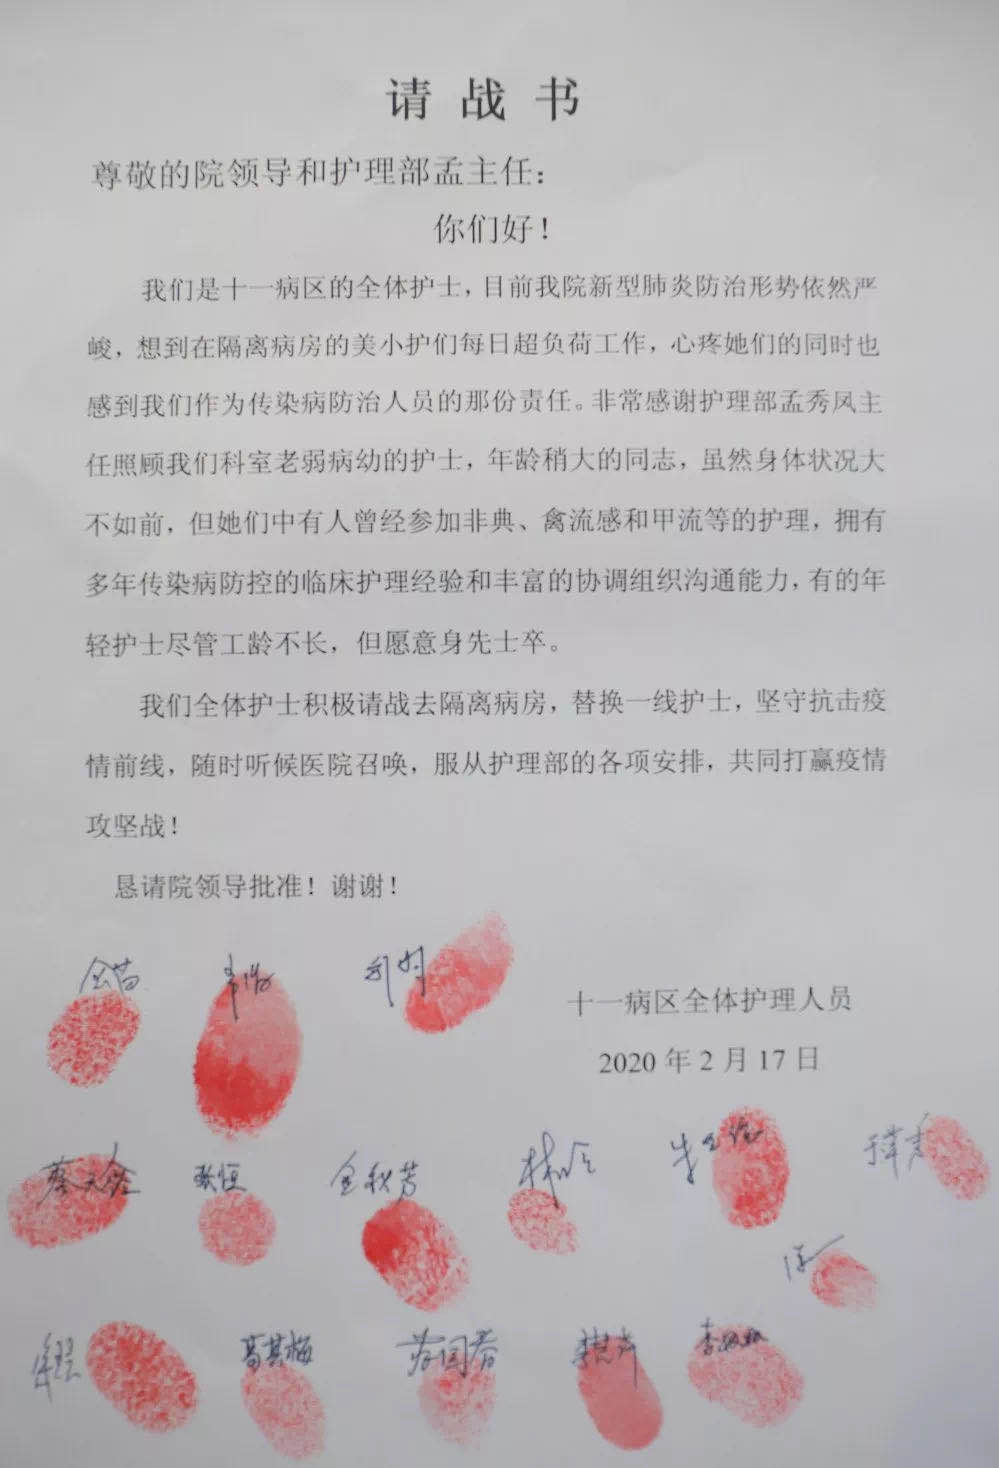 请战书
尊敬的院领导和护理部孟主任：
你们好！
我们是十一病区的全体护士，目前我院新型肺炎防治形势依然严
峻，想到在隔离病房的美小护们每日超负荷工作，心疼她们的同时也
感到我们作为传染病防治人员的那份责任。非常感谢护理部孟秀凤主
任照顾我们科室老弱病幼的护士，年龄稍大的同志，虽然身体状况大
不如前，但她们中有人曾经参加非典、禽流感和甲流等的护理，拥有
多年传染病防控的临床护理经验和丰富的协调组织沟通能力，有的年
轻护士尽管工龄不长，但愿意身先士卒。
我们全体护士积极请战去隔离病房，替换一线护士，坚守抗击疫
情前线，随时听候医院召唤，服从护理部的各项安排，共同打赢疫情
攻坚战！
恳请院领导批准！谢谢！
十一病区全体护理人员
2020 年 2 月 17 日
张恒 金秋芳
高其梅